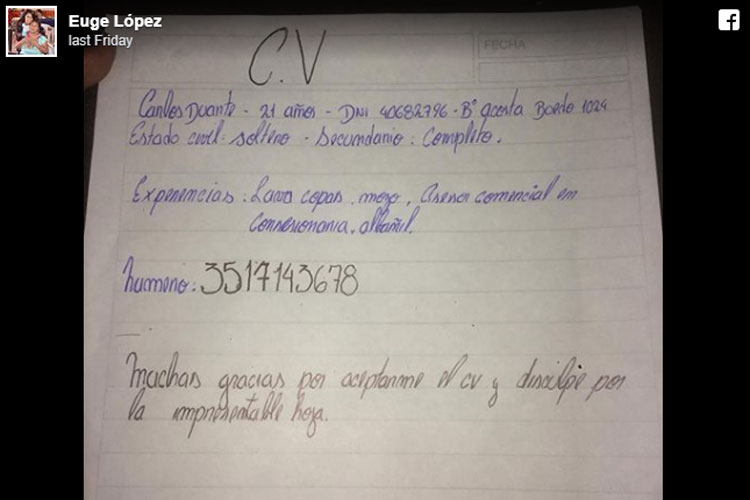 Euge López
last Friday
FECHA
C.V
Carlos Duarte - 21 años - DNI 40682796 - Bº acosta Boedo 1029
Estado civil: soltero - Secundario: Completo.
Experiencias: Lava copas, mozo, asesor comercial en
Connesionaria, albañil.
numero: 3517143678
Muchas gracias por aceptarme el cv y disculpe por
la impresentable hoja.